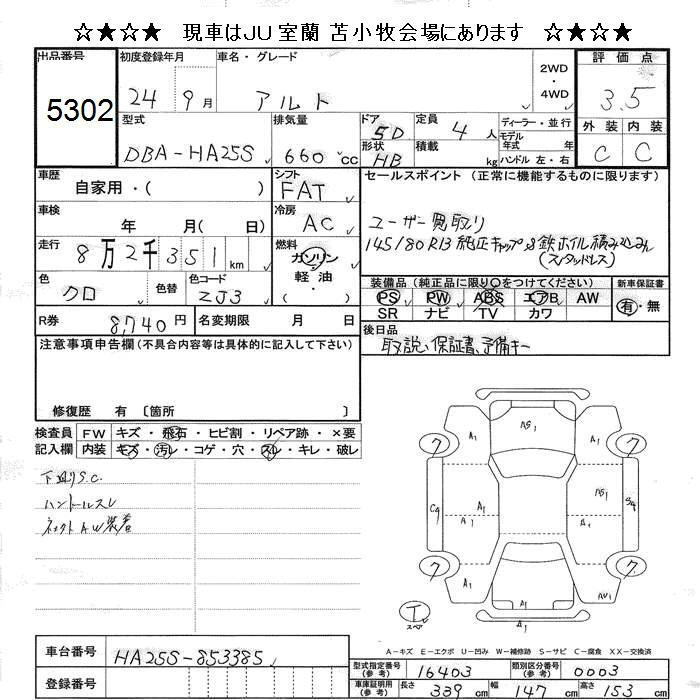 ☆★☆★ 現車はJU室蘭 苫小牧会場にあります ☆★☆★
出品番号
5302
初度登録年月
24 9月
車名・グレード
アルト
2WD
・
4WD
評価点
3.5
外装 内装
C C
型式
DBA-HA25S
排気量
660 cc
ドア
5D
形状
HB
定員
4 人
積載
kg
ディーラー・並行
モデル
年式 年
ハンドル 左・右
車歴
自家用・( )
シフト
FAT
セールスポイント (正常に機能するものに限ります)
ユーザー買取り
145/80R13 純正キャップ&鉄ホイル積み込み
(スタッドレス)
車検
年 月( 日)
冷房
AC
走行
8万2千351km
燃料
ガソリン
・
軽油
色
クロ
色替
色コード
ZJ3
装備品 (純正品に限り○をつけてください)
PS PW ABS エアB AW
SR ナビ TV カワ
新車保証書
有・無
R券
8,740円
名変期限 月 日
後日品
取説、保証書、予備キー
注意事項申告欄 (不具合内容等は具体的に記入して下さい)
修復歴 有 〔箇所 〕
検査員
記入欄
FW キズ・飛石・ヒビ割・リペア跡・×要
内装 キズ・汚レ・コゲ・穴・スレ・キレ・破レ
下廻りS.C.
ハンドルスレ
ネクストAW装着
A1
AS1
A1
ワ
ワ
A1
C4
A1
A1
AS1
A1
S4
ワ
ワ
A1
AU1
A1
T
スペア
A-キズ E-エクボ U-凹み W-補修跡 S-サビ C-腐食 XX-交換済
車台番号
HA25S-853385
登録番号
型式指定番号
(参考)
16403
類別区分番号
(参考)
0003
車庫証明用
(参考)
長さ 339 cm 幅 147 cm 高さ 153 cm